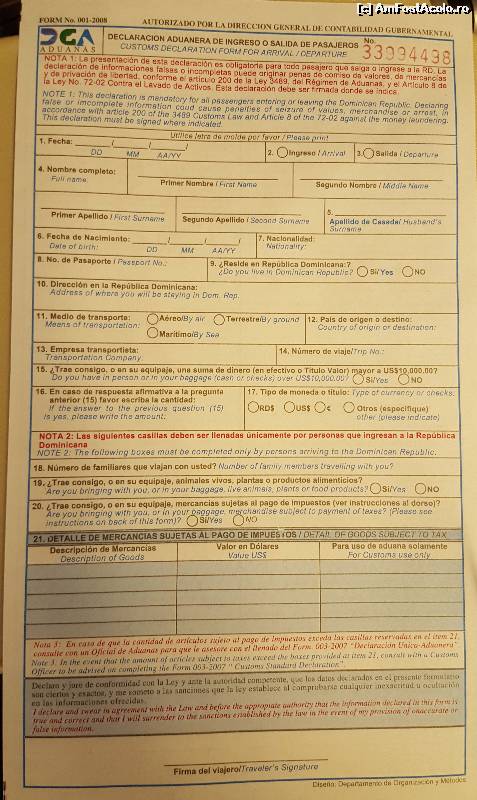 (c) AmFostAcolo.ro
FORM No. 001-2008
AUTORIZADO POR LA DIRECCION GENERAL DE CONTABILIDAD GUBERNAMENTAL
DGA
ADUANAS
DECLARACION ADUANERA DE INGRESO O SALIDA DE PASAJEROS
CUSTOMS DECLARATION FORM FOR ARRIVAL / DEPARTURE
No.
33994498
NOTA 1: La presentación de esta declaración es obligatoria para todo pasajero que salga o ingrese a la RD. La
declaración de informaciones falsas o incompletas puede originar penas de comiso de valores, de mercancías
y de privación de libertad, conforme el artículo 200 de la Ley 3489, del Régimen de Aduanas, y el Artículo 8 de
la Ley No. 72-02 Contra el Lavado de Activos. Esta declaración debe ser firmada donde se indica.
NOTE 1: This declaration is mandatory for all passengers entering or leaving the Dominican Republic. Declaring
false or incomplete information could cause penalties of seizure of values, merchandise or arrest, in
accordance with article 200 of the 3489 Customs Law and Article 8 of the 72-02 against the money laundering.
This declaration must be signed where indicated.
Utilice letra de molde por favor / Please print
1. Fecha: / /
DD MM AA/YY
2. Ingreso / Arrival
3. Salida / Departure
4. Nombre completo:
Full name:
Primer Nombre / First Name
Segundo Nombre / Middle Name
Primer Apellido / First Surname
Segundo Apellido / Second Surname
5.
Apellido de Casada / Husband's
Surname
6. Fecha de Nacimiento: / /
Date of birth: DD MM AA/YY
7. Nacionalidad:
Nationality:
8. No. de Pasaporte / Passport No.:
9. ¿Reside en República Dominicana?
¿Do you live in Dominican Republic? Si/Yes NO
10. Dirección en la República Dominicana:
Address of where you will be staying in Dom. Rep.
11. Medio de transporte:
Means of transportation:
Aéreo/By air
Terrestre/By ground
Marítimo/By Sea
12. País de origen o destino:
Country of origin or destination:
13. Empresa transportista:
Transportation Company:
14. Número de viaje/Trip No.:
15. ¿Trae consigo, o en su equipaje, una suma de dinero (en efectivo o Título Valor) mayor a US$10,000.00?
Do you have in person or in your baggage (cash or checks) over US$10,000.00? Si/Yes NO
16. En caso de respuesta afirmativa a la pregunta
anterior (15) favor escriba la cantidad:
If the answer to the previous question (15)
is yes, please write the amount:
17. Tipo de moneda o título: Type of currency or checks.
RD$ US$ € Otros (especifique)
other (please indicate)
NOTA 2: Las siguientes casillas deben ser llenadas únicamente por personas que ingresan a la República
Dominicana
NOTE 2: The following boxes must be completed only by persons arriving to the Dominican Republic.
18. Número de familiares que viajan con usted? Number of family members travelling with you?
19. ¿Trae consigo, o en su equipaje, animales vivos, plantas o productos alimenticios?
Are you bringing with you, or in your baggage, live animals, plants or food products? Si/Yes NO
20. ¿Trae consigo, o en su equipaje, mercancías sujetas al pago de impuestos (ver instrucciones al dorso)?
Are you bringing with you, or in your baggage, merchandise subject to payment of taxes? (Please see
instructions on back of this form)? Si/Yes NO
21. DETALLE DE MERCANCIAS SUJETAS AL PAGO DE IMPUESTOS / DETAIL OF GOODS SUBJECT TO TAX
Descripción de Mercancías
Description of Goods
Valor en Dólares
Value US$
Para uso de aduana solamente
For Customs use only
Nota 3: En caso de que la cantidad de artículos sujeto al pago de impuestos exceda las casillas reservadas en el item 21,
consulte con un Oficial de Aduanas para que le asesore con el llenado del Form. 003-2007 "Declaración Unica-Aduanera".
Note 3. In the event that the amount of articles subject to taxes exceed the boxes provided at item 21, consult with a Customs
Officer to be advised on completing the Form 003-2007 "Customs Standard Declaration".
Declaro y juro de conformidad con la Ley y ante la autoridad competente, que los datos declarados en el presente formulario
son ciertos y exactos, y me someto a las sanciones que la ley establece al comprobarse cualquier inexactitud u ocultación
en las informaciones ofrecidas.
I declare and swear in agreement with the Law and before the appropiate authority that the information declared in this form is
true and correct and that I will surrender to the sanctions established by the law in the event of my provision of onaccurate or
false information.
Firma del viajero/Traveler's Signature
Diseño: Departamento de Organización y Métodos